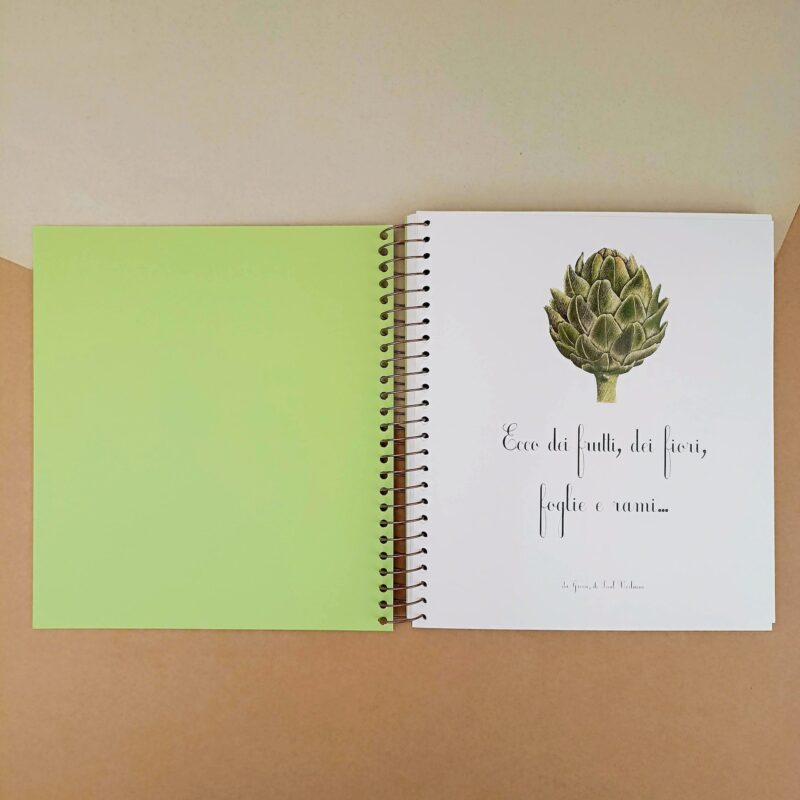 Ecco dei frutti, dei fiori,
foglie e rami...
da Green, di Paul Verlaine